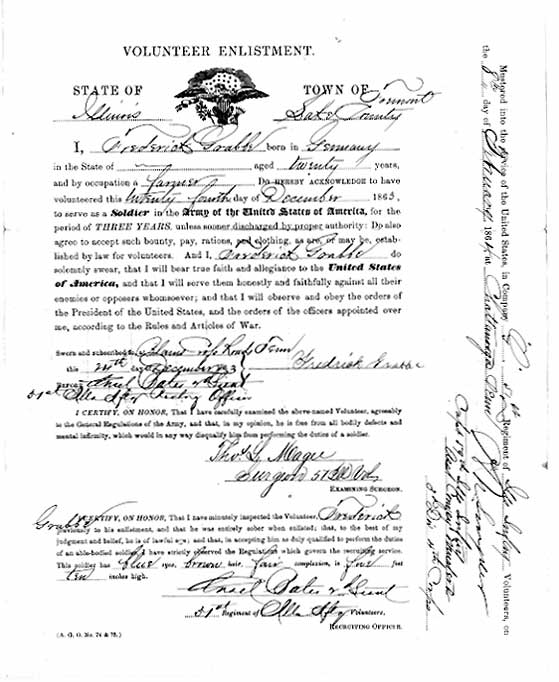 VOLUNTEER ENLISTMENT.
STATE OF TOWN OF Fremont
Illinois Lake County
I, Frederick Grabbe born in Germany
in the State of aged twenty years,
and by occupation a farmer Do HEREBY ACKNOWLEDGE to have
volunteered this twenty fourth day of December 1863,
to serve as a Soldier in the Army of the United States of America, for the
period of THREE YEARS, unless sooner discharged by proper authority: Do also
agree to accept such bounty, pay, rations, and clothing, as are, or may be, estab-
lished by law for volunteers. And I, Frederick Grabbe do
solemnly swear, that I will bear true faith and allegiance to the United States
of America, and that I will serve them honestly and faithfully against all their
enemies or opposers whomsoever; and that I will observe and obey the orders
of the President of the United States, and the orders of the officers appointed over
me, according to the Rules and Articles of War.
Sworn and subscribed to, at Blains Cross Roads Tenn
this 24th day of December 1863
Fredrick Grabbe
Before Bates
51st Ills Infty Officer
I CERTIFY, ON HONOR, That I have carefully examined the above-named Volunteer, agreeably
to the General Regulations of the Army, and that, in my opinion, he is free from all bodily defects and
mental infirmity, which would in any way disqualify him from performing the duties of a soldier.
Thos. L. Magee
Surgeon 51 Ill Vol
EXAMINING SURGEON.
I CERTIFY, ON HONOR, That I have minutely inspected the Volunteer, Frederick
Grabbe
previously to his enlistment, and that he was entirely sober when enlisted; that, to the best of my
judgment and belief, he is of lawful age; and that, in accepting him as duly qualified to perform the duties
of an able-bodied soldier, I have strictly observed the Regulations which govern the recruiting service.
This soldier has blue eyes, brown hair, fair complexion, is five feet
ten inches high.
Bates
51st Regiment of Ills Infty Volunteers,
RECRUITING OFFICER.
(A. G. O. No. 74 & 75.)
Mustered into the service of the United States, in Company 51st Regiment of Ills Infty Volunteers, on
the 8th day of February 1864, at Chattanooga Tenn